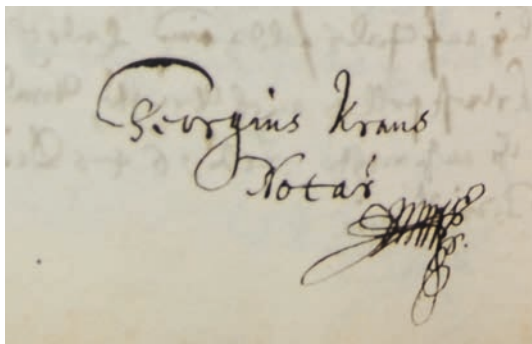 Georgius Kraus
Notar